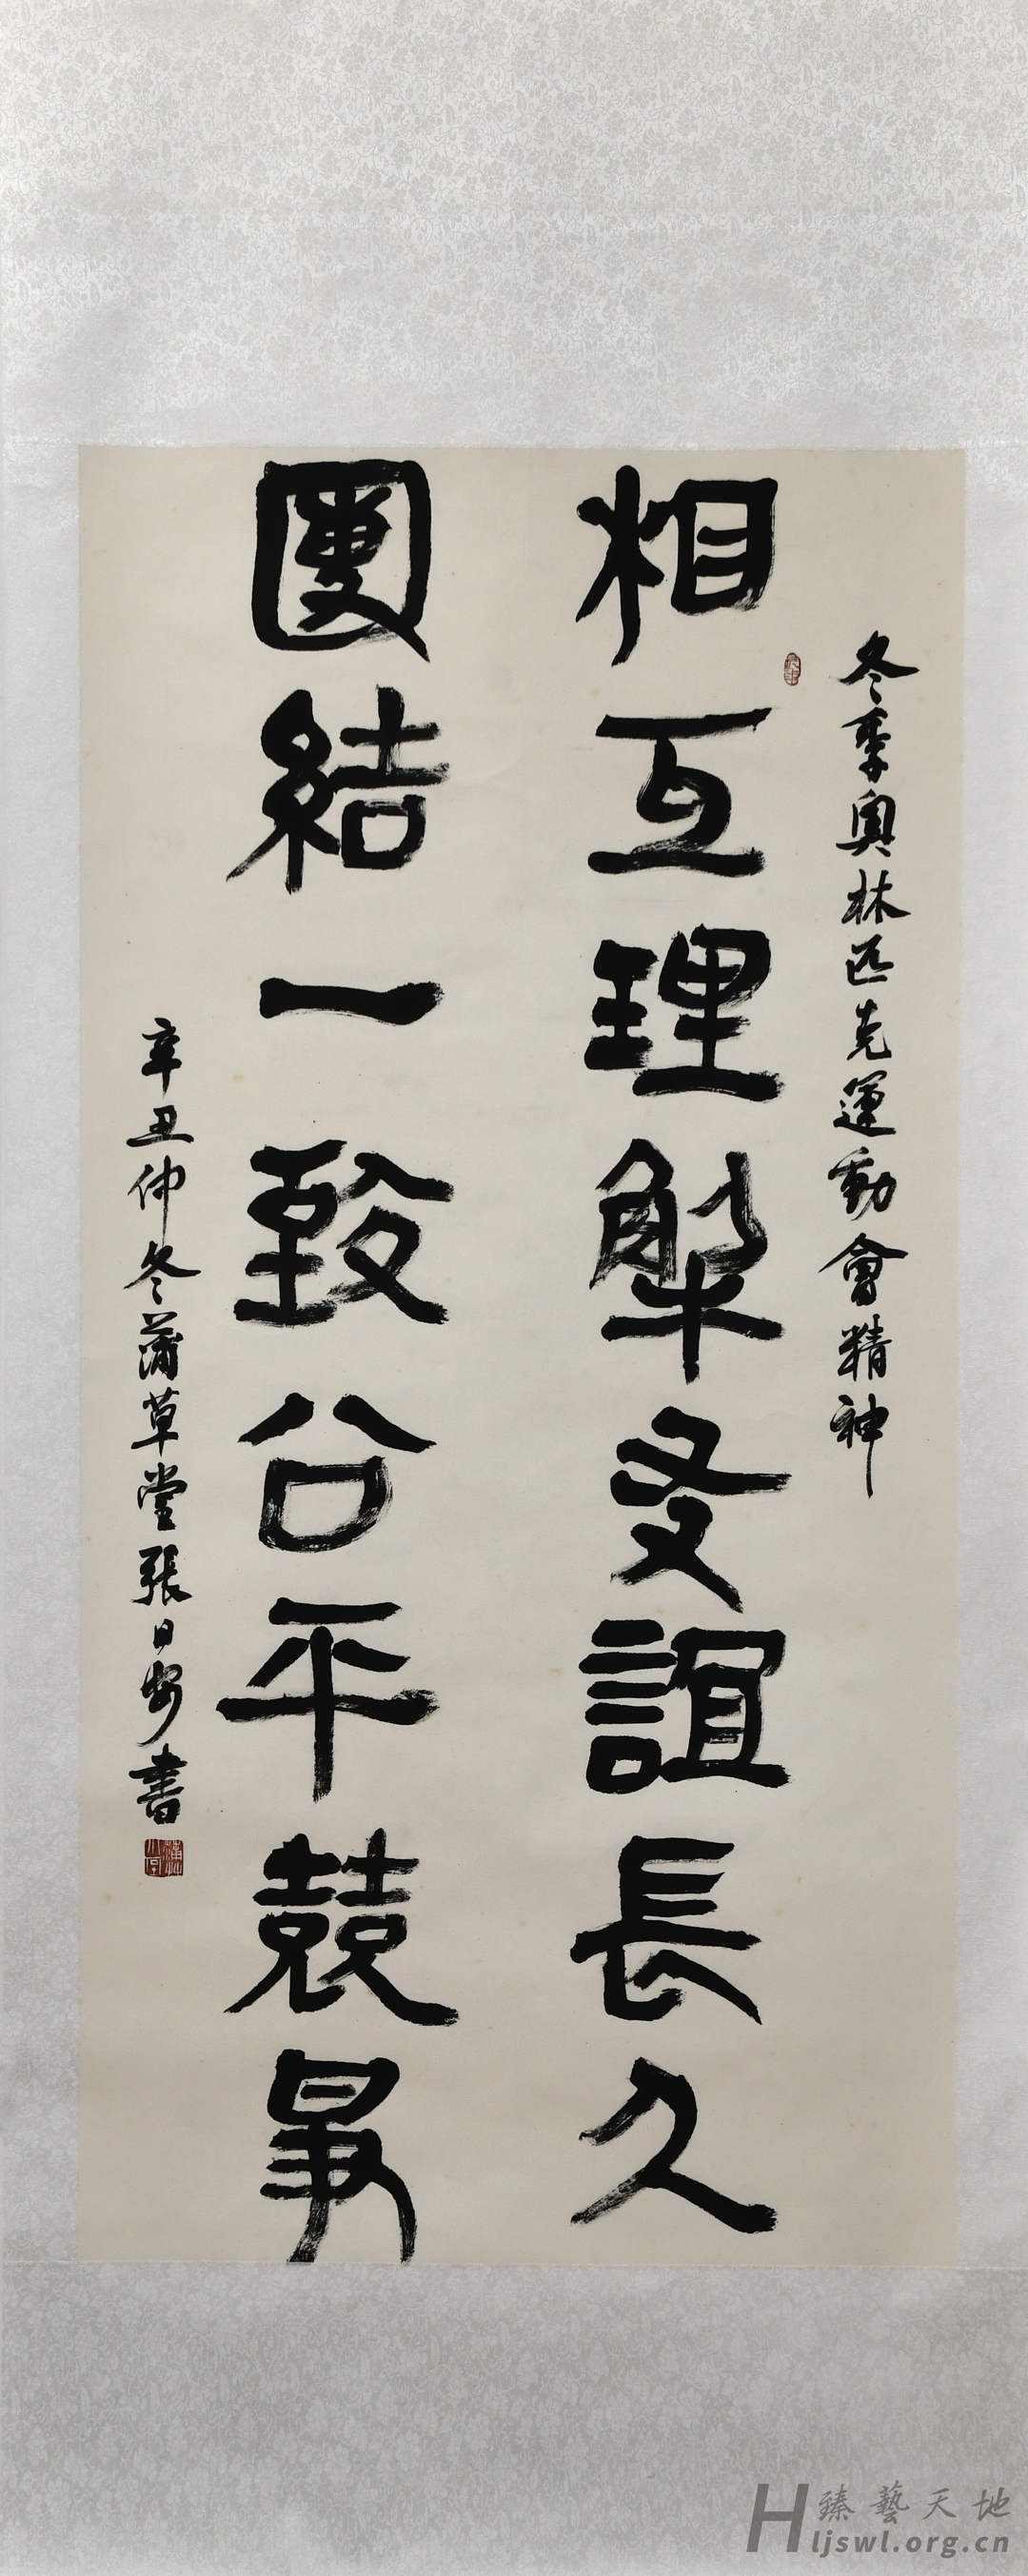 冬季奧林匹克運動會精神
相互理解友誼長久
團結一致公平競爭
辛丑仲冬蒲草堂張日安書
臻藝天地
Hljswl.org.cn